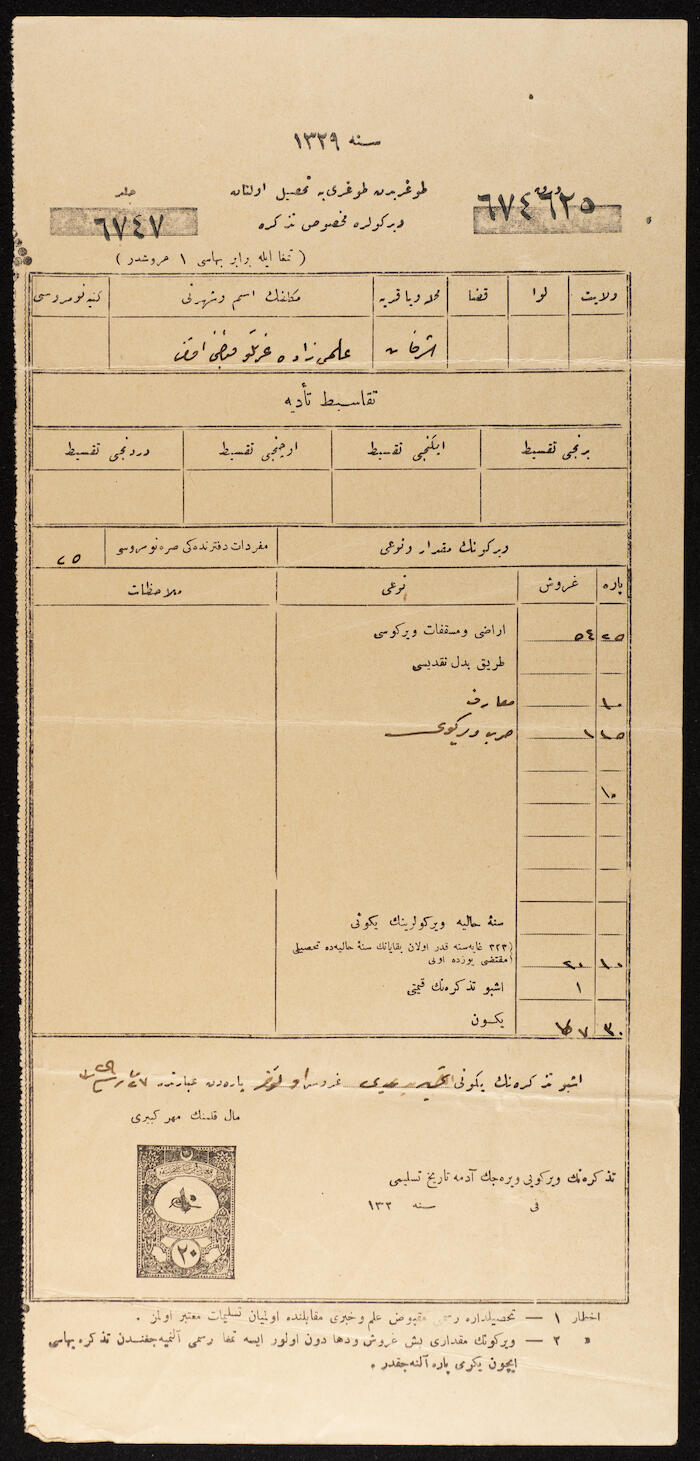 سنه ١٣٢٩
طوغریدن طوغری یه تحصیل اولنان
ویرکولره مخصوص تذکره
ورق
٦٧٤٦٢٥
جلد
٦٧٤٧
( تمغا ایله برابر بهاسی ١ غروشدر )
ولایت لوا قضا محله ویا قریه مکلفك اسم وشهرتی کتیه نومروسی
علمی زاده افندی
تقاسیط تأدیه
برنجی تقسیط ایکنجی تقسیط اوچنجی تقسیط دردنجی تقسیط
ویرکونك مقدار ونوعی مفردات دفترنده کی صره نومروسی ٢٥
پاره غروش نوعی ملاحظات
٢٥ ٥٤ اراضی ومسقفات ویرکوسی
طریق بدل نقدیسی
١٠ معارف
حرب ویرکوسی
١٠
سنهٔ حالیه ویرکولرینك یکونی
(٣٢٣ غایه سنه قدر اولان بقایانك سنهٔ حالیه ده تحصیلی
مقتضی یوزده اونی) ١٠ ٢٠
١ اشبو تذکره نك قیمتی
٣٠ یکون
اشبو تذکره نك یکونی یتمش یدی غروش اوتوز پاره دن عبارتدر
مال قلمنك مهر کبیری
تذکره نك ویرکویی ویره جك آدمه تاریخ تسلیمی
فی سنه ١٣٢
٢٠
اخطار ١ — تحصیلداره رسمی مقبوض علم و خبری مقابلنده اولمیان تسلیمات معتبر اولمز .
« ٢ — ویرکونك مقداری بش غروش ودها دون اولور ایسه تمغا رسمی آلنمیه جغندن تذکره بهاسی
ایچون یکرمی پاره آلنه جقدر .